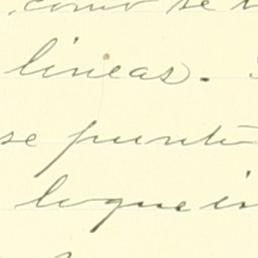 , como se
lineas. -
se punto
loque in